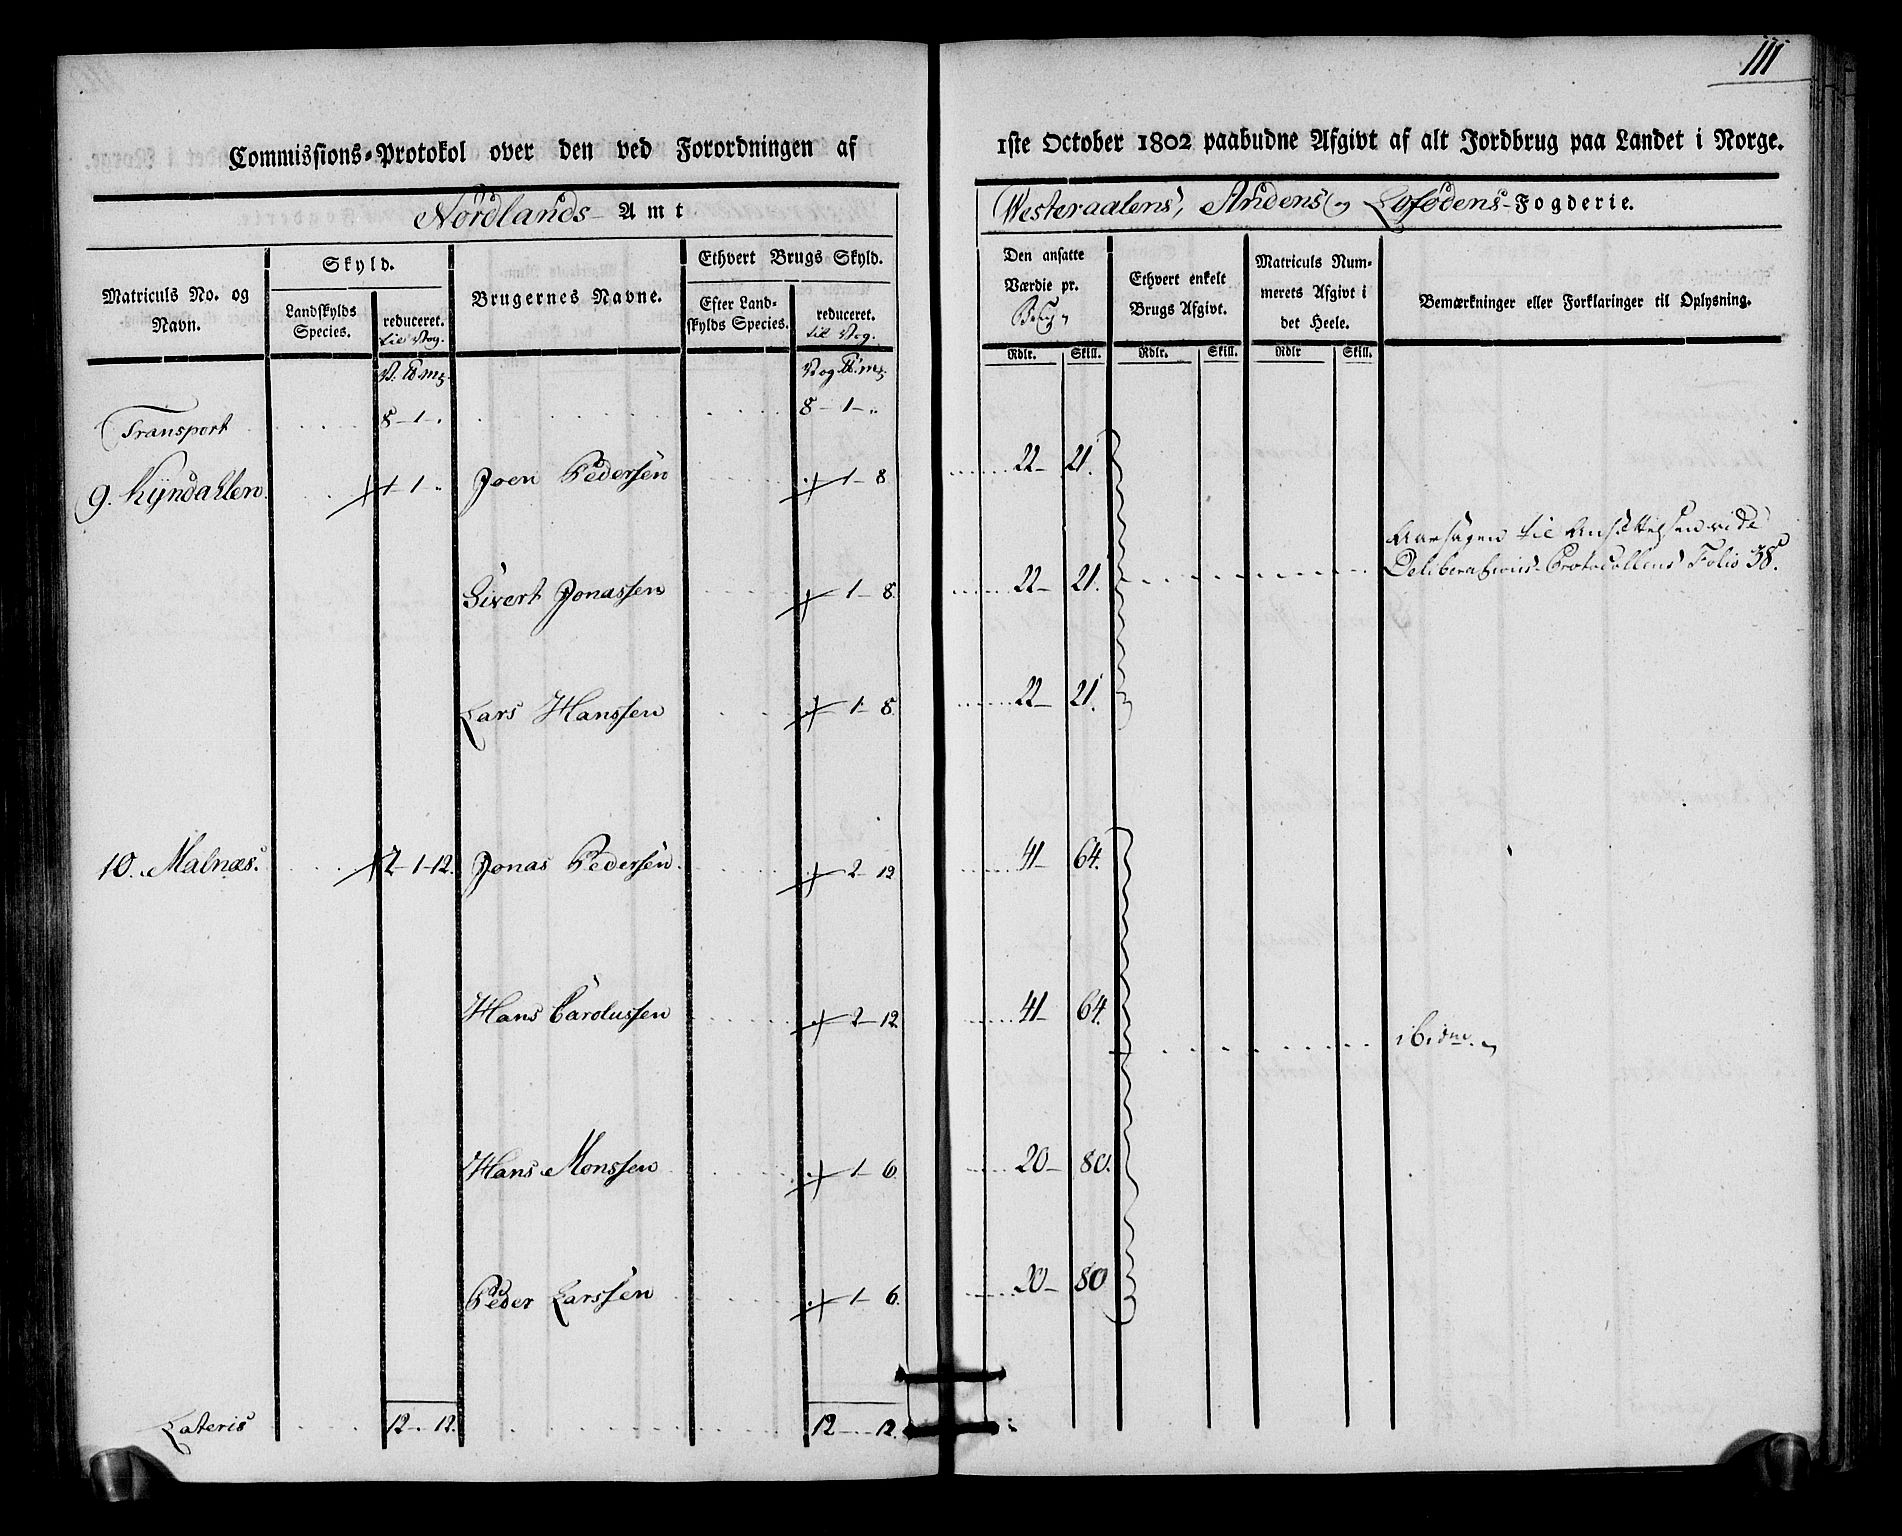 111
Commissions-Protokol over den ved Forordningen af 1ste October 1802 paabudne Afgivt af alt Jordbrug paa Landet i Norge.
Nordlands-Amt Westeraalens, Andens og Lofodens-Fogderie.
Matriculs No. og Navn.
Skyld.
Landskylds Species.
reduceret. til Vog.
Brugernes Navne.
Ethvert Brugs Skyld.
Efter Landskylds Species.
reduceret. til Vog.
Den ansatte Værdie pr.
Ethvert enkelt Brugs Afgivt.
Matriculs Nummerets Afgivt i det Heele.
Bemærkninger eller Forklaringer til Oplysning.
Rdlr. Skill. Rdlr. Skill. Rdlr Skill.
Transport 8-1-" 8-1-"
9. Kyndahlen 1-1-" Joen Pedersen 1-8 22-21.
Sivert Jonassen 1-8. 22-21.
Aarsagen til Ansættelsen vide
Deliberations-Protocollens Folio 38.
Lars Hanssen 1-8. 22-21.
10. Malnæs. 2-1-12. Jonas Pedersen. 2-12 41-64.
Hans Carolussen 2-12 41-64.
ibidm.
Hans Monssen 1-6. 20-80.
Peder Larssen 1-6. 20-80
Lateris 12-.-12. 12-.-12.